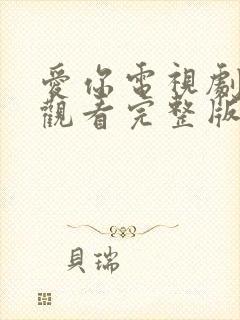 愛你電視劇
觀看完整版
貝瑞